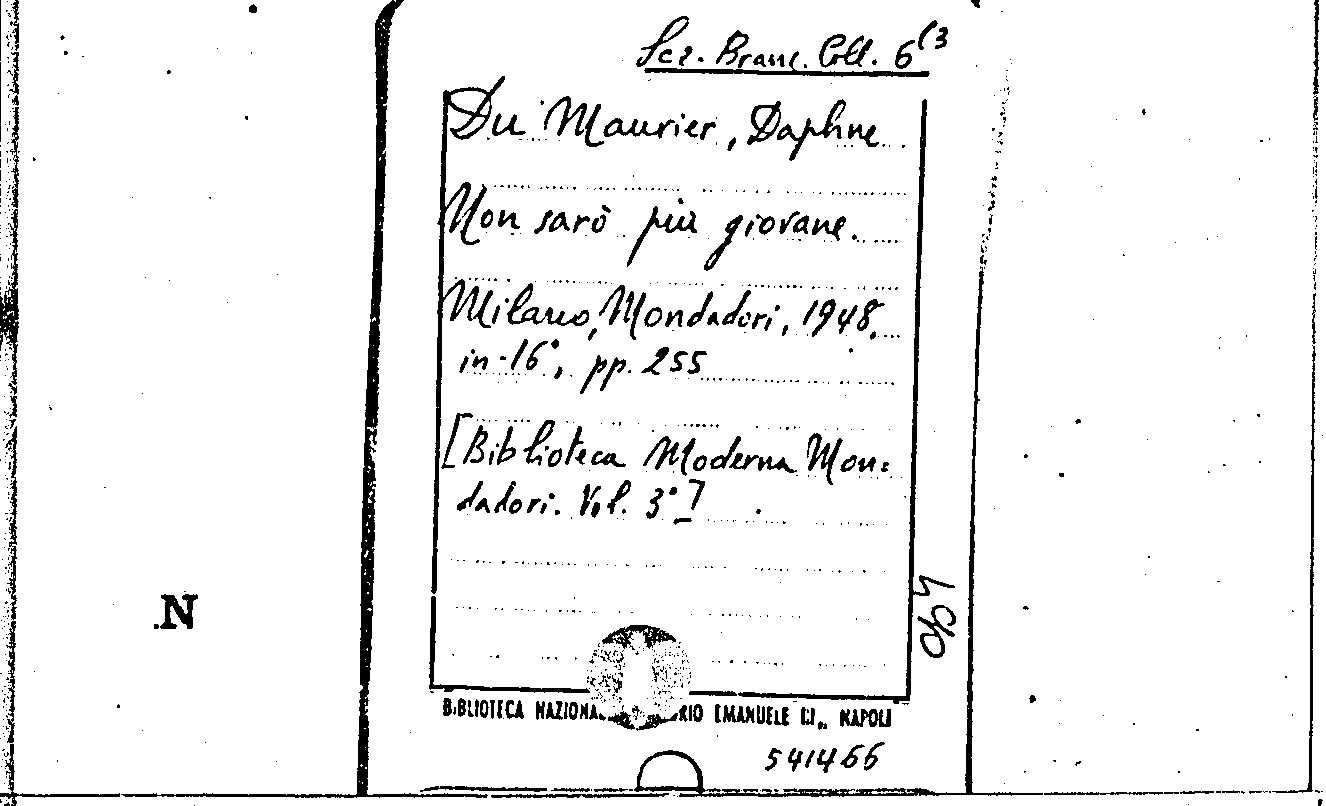 Sez. Branc. Coll. 6(3
Du Maurier, Daphne
Non sarò più giovane.
Milano, Mondadori, 1948.
in-16°, pp. 255
[Biblioteca Moderna Mon=
dadori. Vol. 3°]
N
BIBLIOTECA EMANUELE III„ NAPOLI
541466